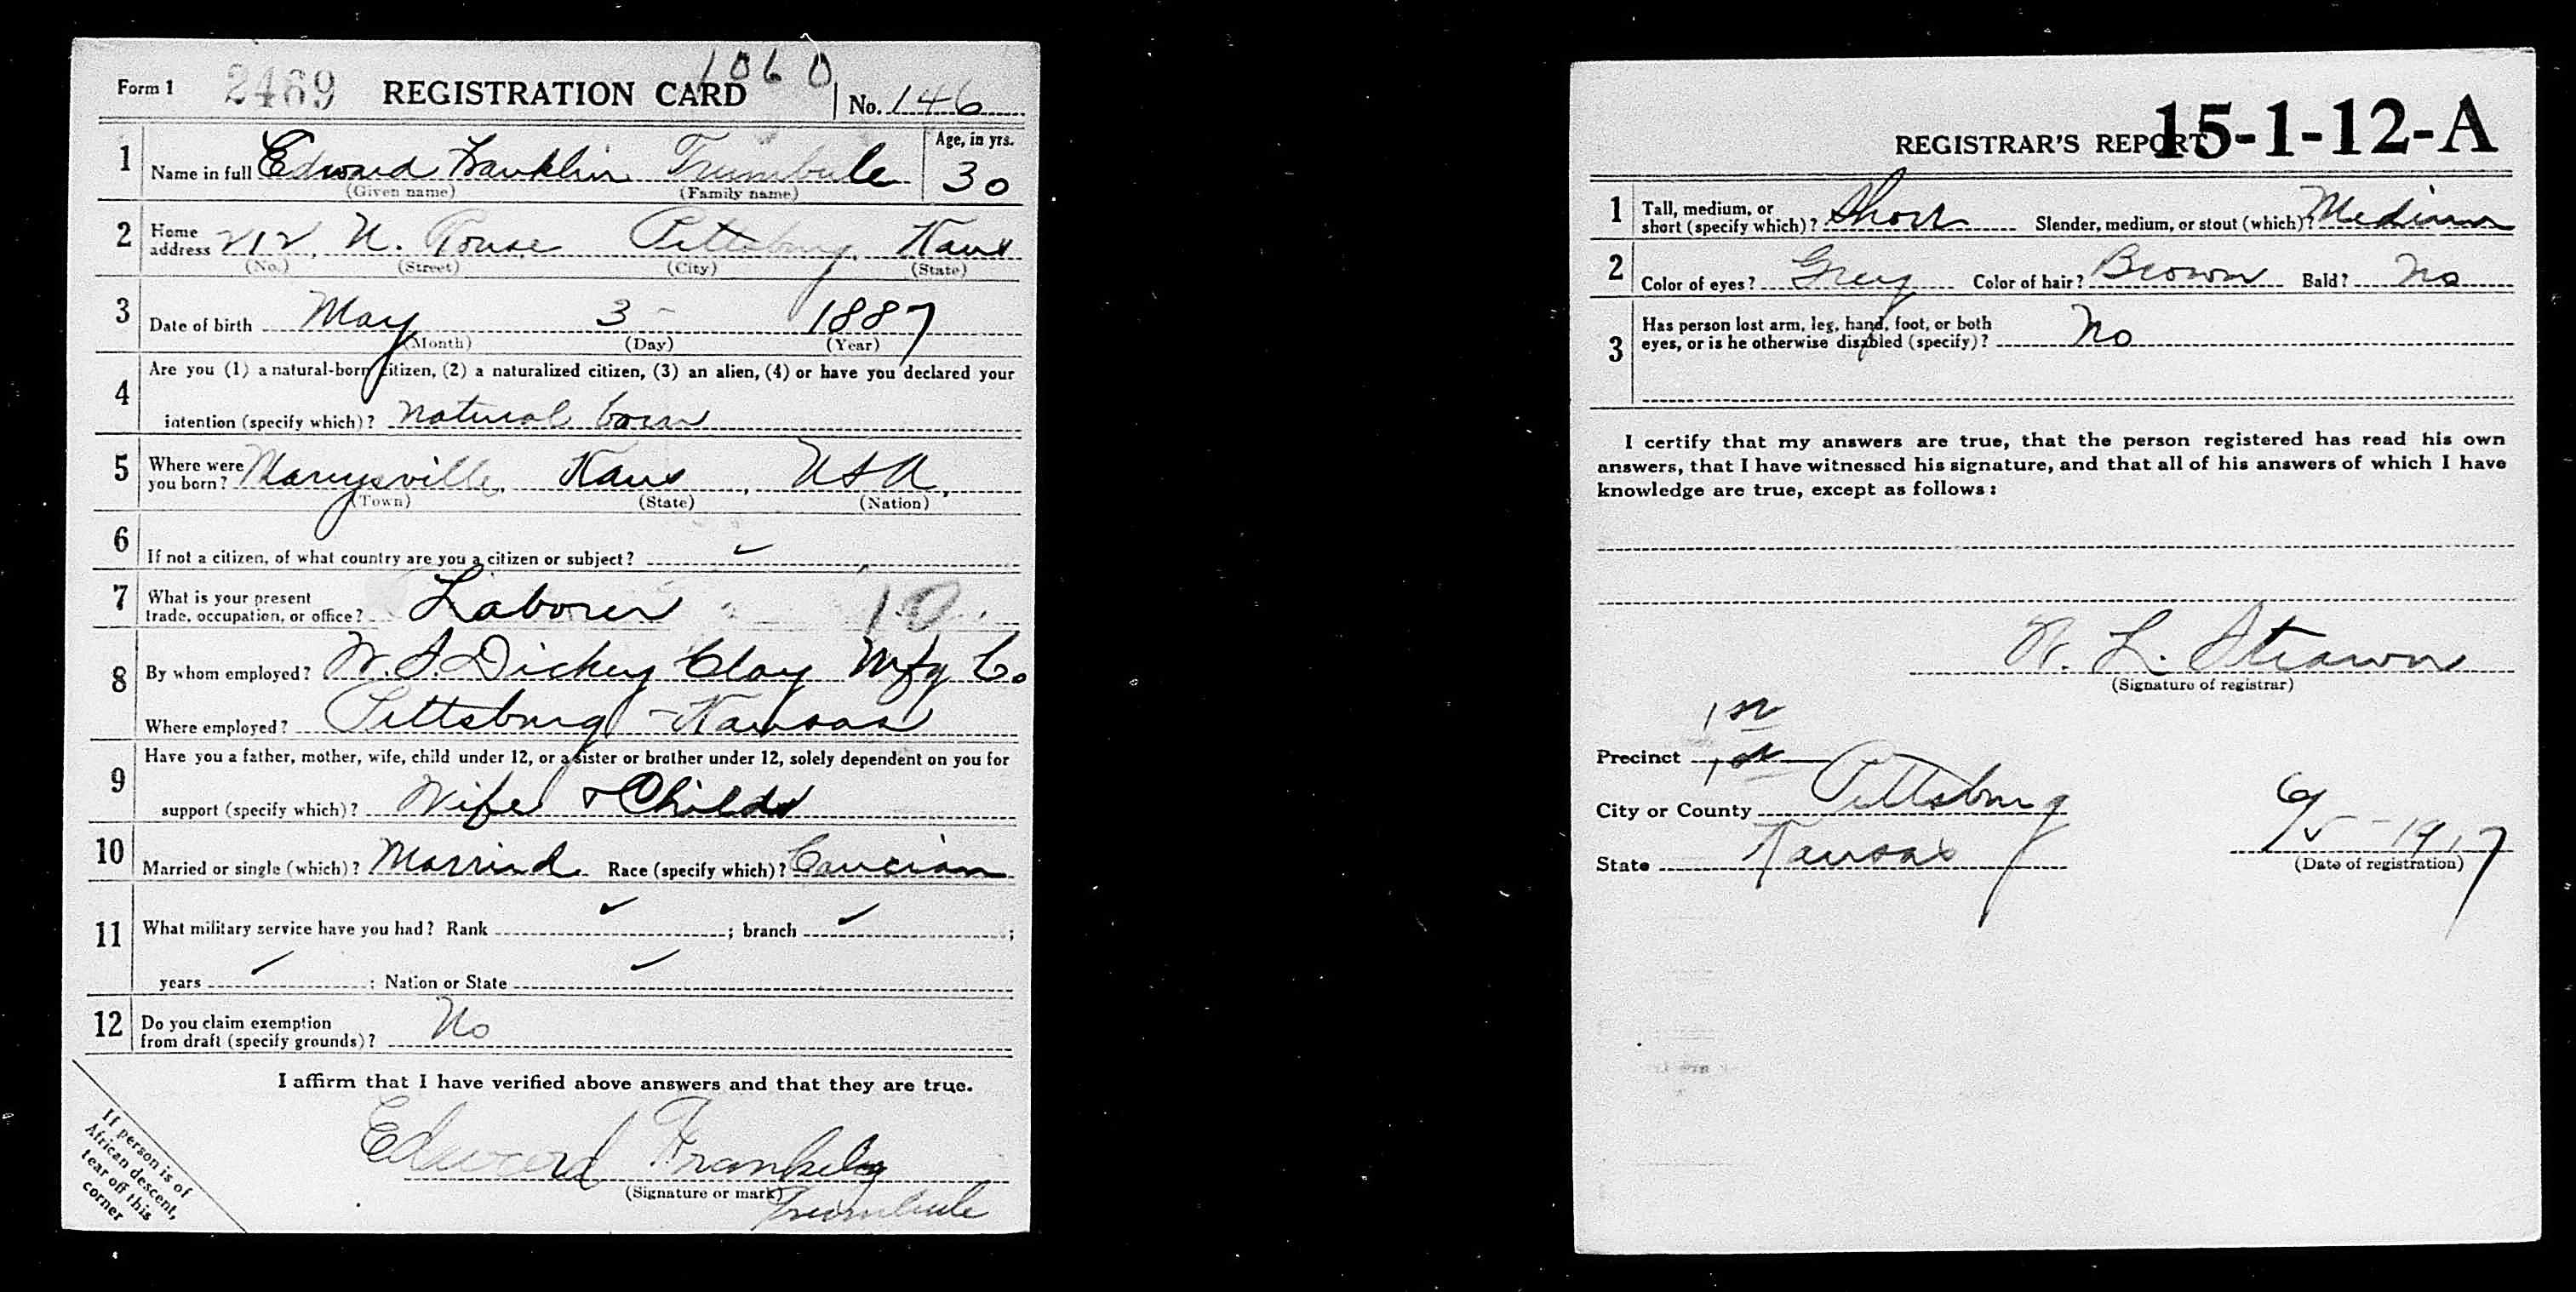 1060
Form 1 2469 REGISTRATION CARD No. 146
1 Name in full Edward Franklin Trumbule Age, in yrs. 30
(Given name) (Family name)
2 Home address 212 N. Rouse Pittsburg, Kans
(No.) (Street) (City) (State)
3 Date of birth May 3- 1887
(Month) (Day) (Year)
4 Are you (1) a natural-born citizen, (2) a naturalized citizen, (3) an alien, (4) or have you declared your
intention (specify which)? natural born
5 Where were you born? Marysville, Kans, USA,
(Town) (State) (Nation)
6 If not a citizen, of what country are you a citizen or subject? ✓
7 What is your present
trade, occupation, or office? Laborer 10
8 By whom employed? W. S. Dickey Clay Mfg Co
Where employed? Pittsburg - Kansas
9 Have you a father, mother, wife, child under 12, or a sister or brother under 12, solely dependent on you for
support (specify which)? Wife & Child
10 Married or single (which)? Married Race (specify which)? Caucian
11 What military service have you had? Rank ✓ ; branch ✓ ;
years ✓ ; Nation or State ✓
12 Do you claim exemption
from draft (specify grounds)? No
I affirm that I have verified above answers and that they are true.
Edward Franklin
(Signature or mark)
Trumbule
If person is of
African descent,
tear off this
corner
REGISTRAR'S REPORT 15-1-12-A
1 Tall, medium, or
short (specify which)? Short Slender, medium, or stout (which)? Medium
2 Color of eyes? Grey Color of hair? Brown Bald? No
3 Has person lost arm, leg, hand, foot, or both
eyes, or is he otherwise disabled (specify)? No
I certify that my answers are true, that the person registered has read his own
answers, that I have witnessed his signature, and that all of his answers of which I have
knowledge are true, except as follows:
W. L. Strawn
(Signature of registrar)
1st
Precinct 1st
City or County Pittsburg
State Kansas 6/5-1917
(Date of registration)